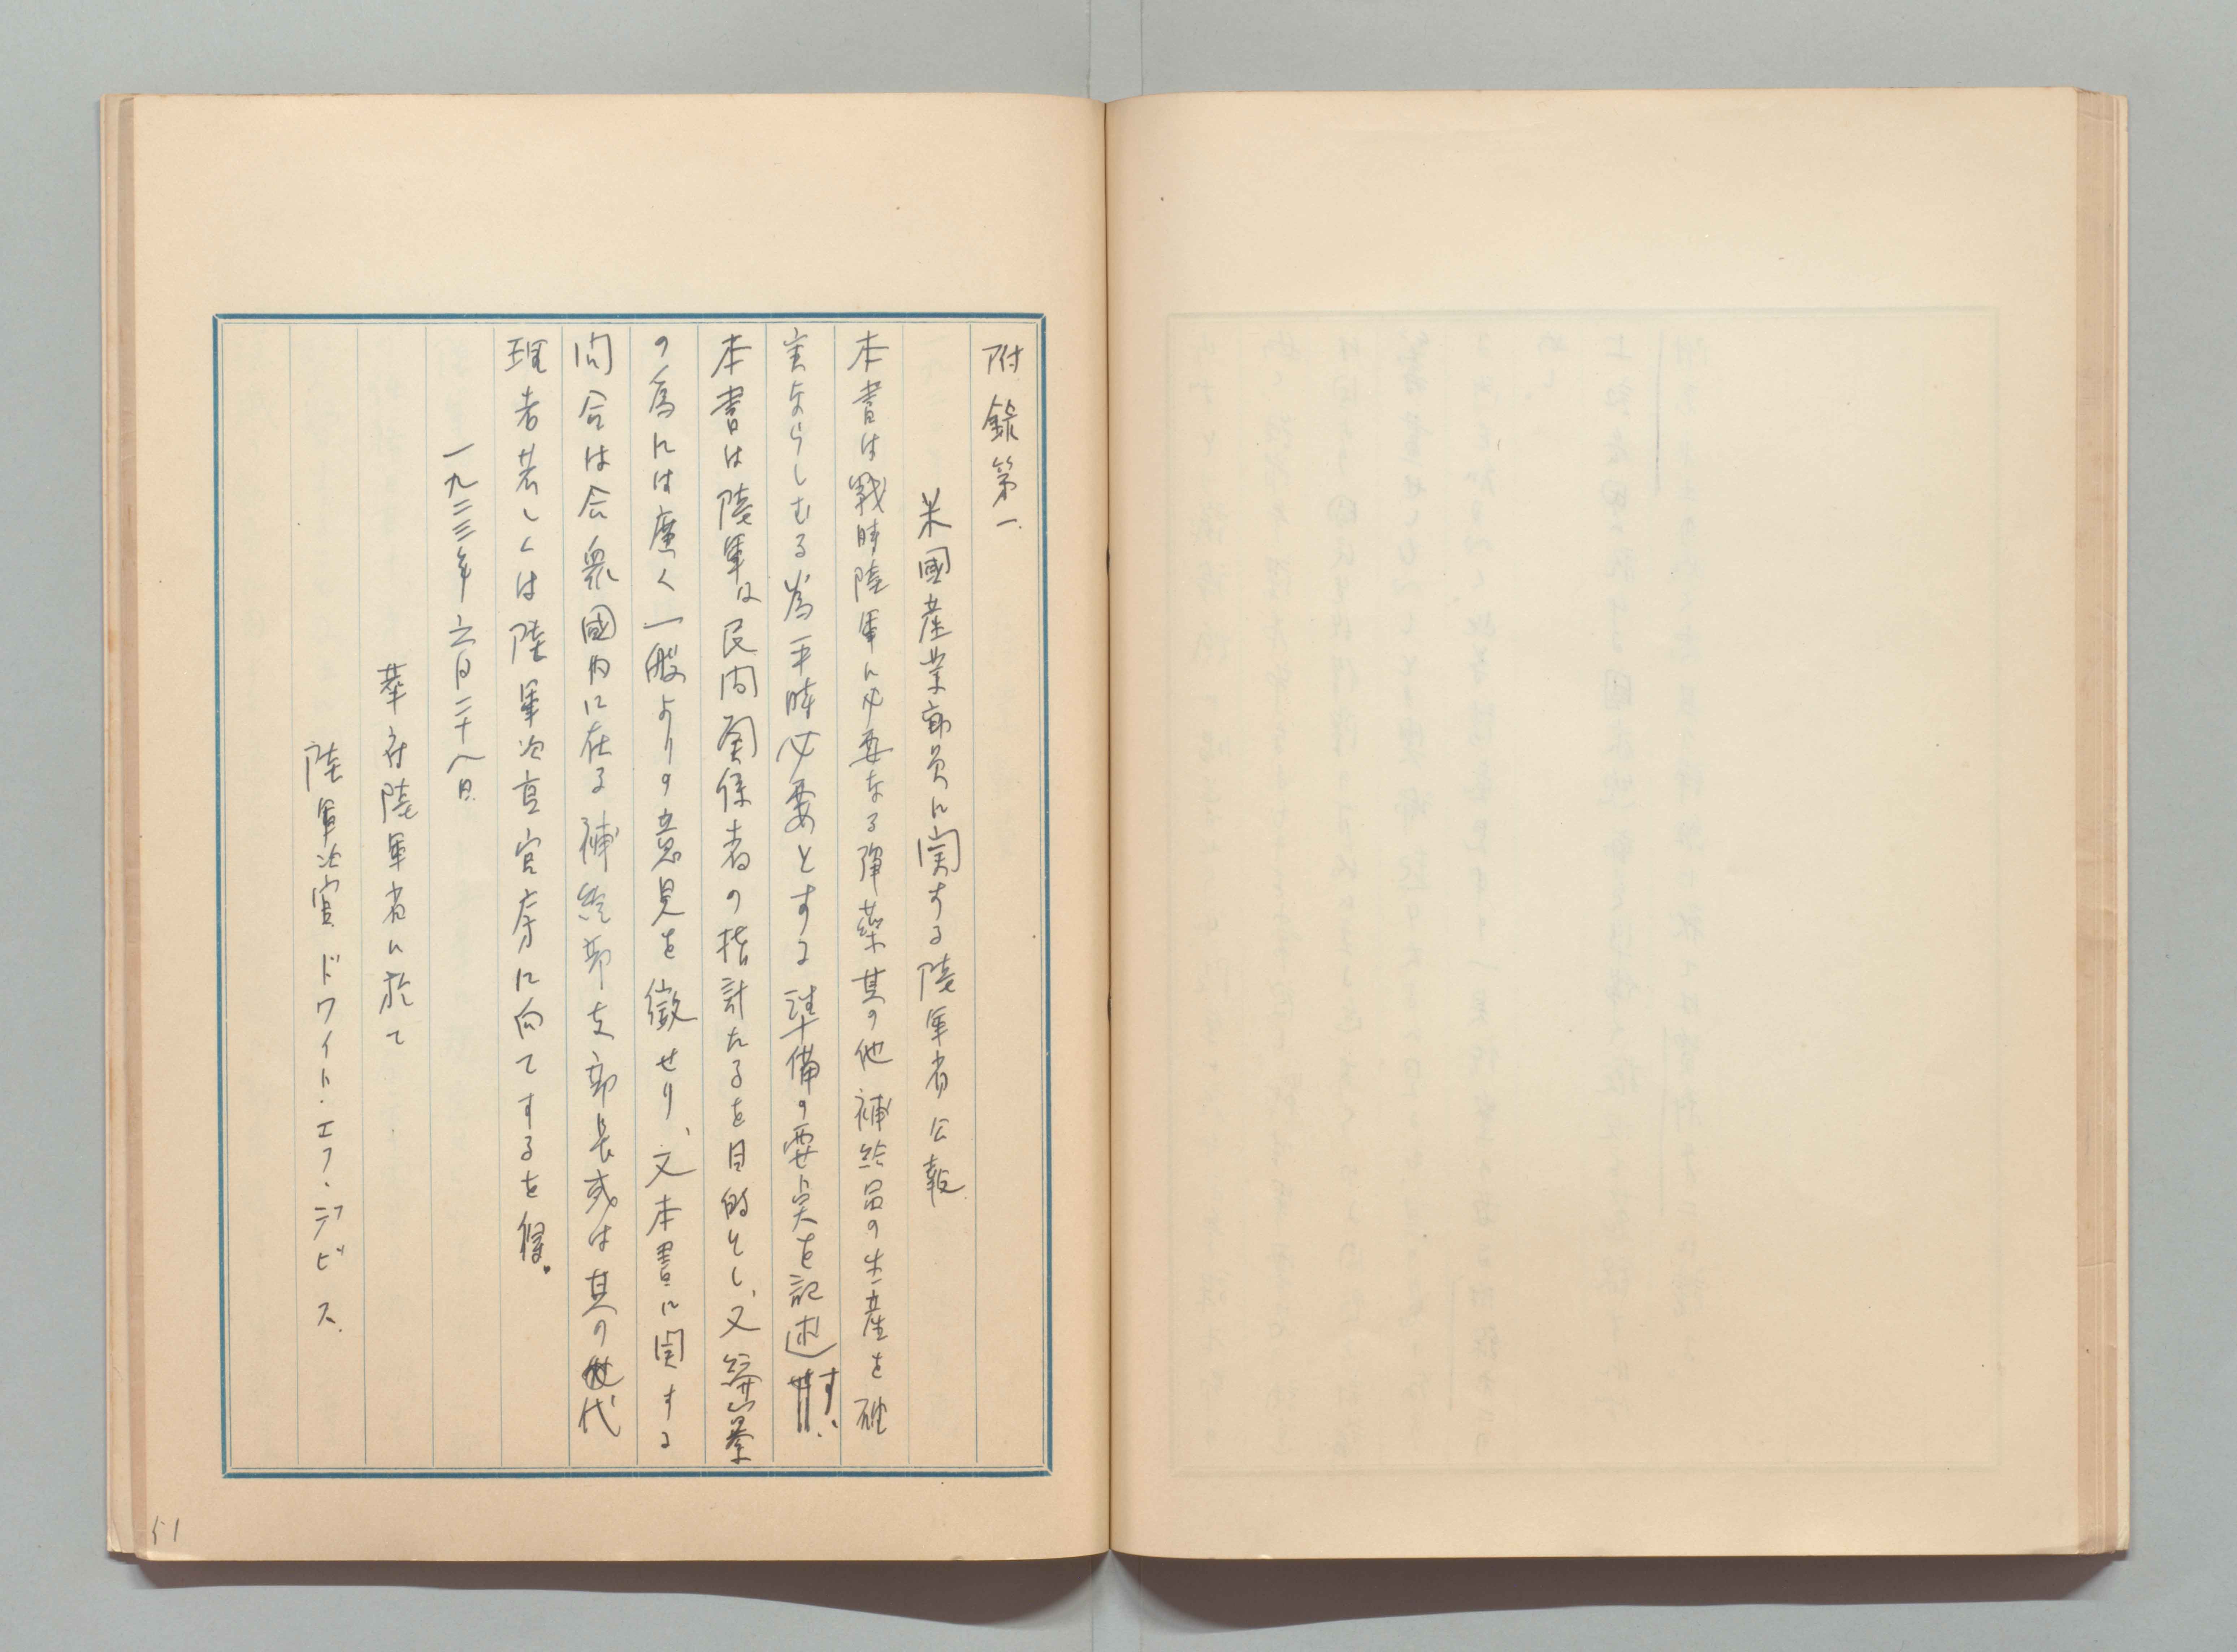 附錄第一
米國産業動員に関する陸軍省公報
本書は戰時陸軍に必要なる弾藥其の他補給品の生産を確
実ならしむる為平時必要とする準備の要点を記述す、
本書は陸軍及民间関係者の指針たるを目的とし、又編纂
の為には廣く一般よりの意見を徴せり、文本書に関する
问合は合衆國内に在る補給部支部長或は其の代
理者若しくは陸軍次官官房に向てするを得。
一九二三年六月二十八日
華府陸軍省に於て
陸軍次官 ドワイト・エフ・デビス
51